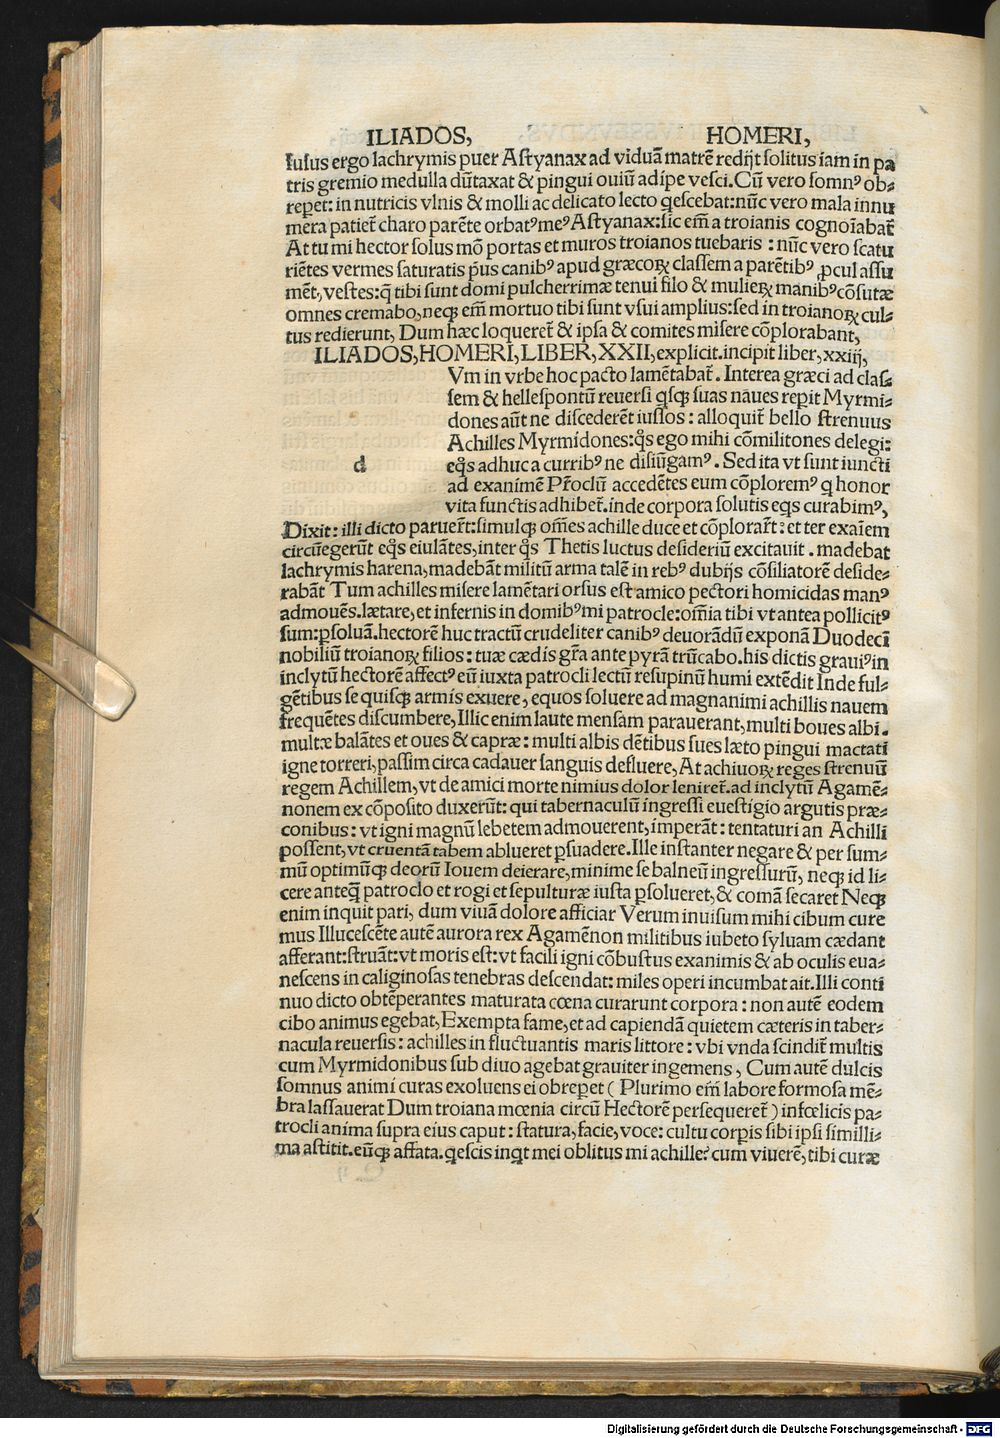 ILIADOS, HOMERI,
Iusus ergo lachrymis puer Astyanax ad viduā matrē redijt solitus iam in pa
tris gremio medulla dūtaxat & pingui ouiū adipe vesci. Cū vero somnꝰ ob⸗
repet: in nutricis vlnis & molli ac delicato lecto q̇escebat: nūc vero mala innu
mera patiet̄ charo parēte orbatꝰ meꝰ Astyanax: sic em̄ a troianis cognoīabat̄
At tu mi hector solus mō portas et muros troianos tuebaris : nūc vero scatu
riētes vermes saturatis pͥus canibꝰ apud græcoꝝ classem a parētibꝰ ꝓcul assu
mēt, vestes: q̄ tibi sunt domi pulcherrimæ tenui filo & mulieꝝ manibꝰ cōsutæ
omnes cremabo, neqꝫ em̄ mortuo tibi sunt vsui amplius: sed in troianoꝝ cul⸗
tus redierunt, Dum hæc loqueret̄ & ipsa & comites misere cōplorabant,
ILIADOS, HOMERI, LIBER, XXII, explicit. incipit liber, xxiij,
Vm in vrbe hoc pacto lamētabat̄. Interea græci ad clas⸗
sem & hellespontū reversi q̇sqꝫ suas naues repit Myrmi⸗
dones aūt ne discederēt iussos : alloquit̄ bello strenuus
Achilles Myrmidones: q̊s ego mihi cōmilitones delegi:
d eq̊s adhuc a curribꝰ ne disiūgamꝰ. Sed ita vt sunt iuncti
ad exanimē Pr̄oclū accedētes eum cōploremꝰ q honor
vita functis adhibet̄. inde corpora solutis eq̇s curabimꝰ,
Dixit: illi dicto paruer̄t: simulqꝫ om̄es achille duce et cōplorar̄t: et ter exaīem
circūegerūt eq̊s eiulātes, inter q̊s Thetis luctus desideriū excitauit . madebat
lachrymis harena, madebāt militū arma talē in rebꝰ dubijs cōsiliatorē deside⸗
rabāt Tum achilles misere lamētari orsus est amico pectori homicidas manꝰ
admouēs. lætare, et infernis in domibꝰ mi patrocle: om̄ia tibi vt antea pollicitꝰ
sum: ꝑsoluā. hectorē huc tractū crudeliter canibꝰ deuorādū exponā Duodecī
nobiliū troianoꝝ filios : tuæ cædis gr̄a ante pyrā trūcabo. his dictis grauiꝰ in
inclytū hectorē affectꝰ eū iuxta patrocli lectū resupinū humi extēdit Inde ful⸗
gētibus se quisqꝫ armis exuere, equos soluere ad magnanimi achillis nauem
frequētes discumbere, Illic enim laute mensam parauerant, multi boues albi.
multæ balātes et oues & capræ : multi albis dētibus sues læto pingui mactati
igne torreri, passim circa cadauer sanguis defluere, At achiuoꝝ reges strenuū
regem Achillem, vt de amici morte nimius dolor leniret̄. ad inclytū Agamē⸗
nonem ex cōposito duxerūt: qui tabernaculū ingressi euestigio argutis præ⸗
conibus : vt igni magnū lebetem admouerent, imperāt : tentaturi an Achilli
possent, vt cruentā tabem ablueret ꝑsuadere. Ille instanter negare & per sum⸗
mū optimūqꝫ deorū Iouem deierare, minime se balneū ingressurū, neqꝫ id li⸗
cere anteq̄ patroclo et rogi et sepulturæ iusta ꝑsolueret, & comā secaret Neqꝫ
enim inquit pari, dum viuā dolore afficiar Verum inuisum mihi cibum cure
mus Illucescēte autē aurora rex Agamēnon militibus iubeto syluam cædant
afferant: struāt: vt moris est: vt facili igni cōbustus exanimis & ab oculis eua⸗
nescens in caliginosas tenebras descendat: miles operi incumbat ait. Illi conti
nuo dicto obtēperantes maturata cœna curarunt corpora : non autē eodem
cibo animus egebat, Exempta fame, et ad capiendā quietem cæteris in taber⸗
nacula reuersis : achilles in fluctuantis maris littore : vbi vnda scindit̄ multis
cum Myrmidonibus sub diuo agebat grauiter ingemens, Cum autē dulcis
somnus animi curas exoluens ei obrepet ( Plurimo em̄ labore formosa mē⸗
bra lassauerat Dum troiana mœnia circū Hectorē persequeret̄ ) infœlicis pa⸗
trocli anima supra eius caput : statura, facie, voce: cultu corꝑis sibi ipsi simılli⸗
ma astitit. eūqꝫ affata. q̇escis inq̇t mei oblitus mi achille? cum viuerē, tibi curæ
Digitalisierung gefördert durch die Deutsche Forschungsgemeinschaft - DFG